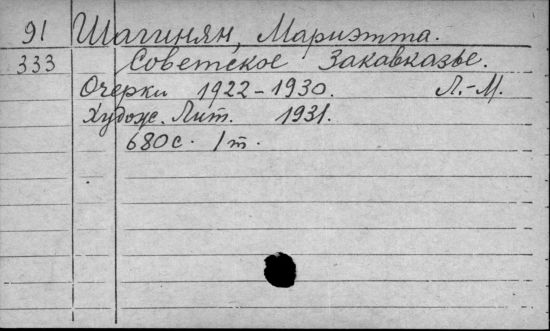 91 Шагинян, Мариэтта.
333 Советское Закавказье.
Очерки 1922-1930. Л.-М.
Худож. Лит. 1931.
680с. 1т.